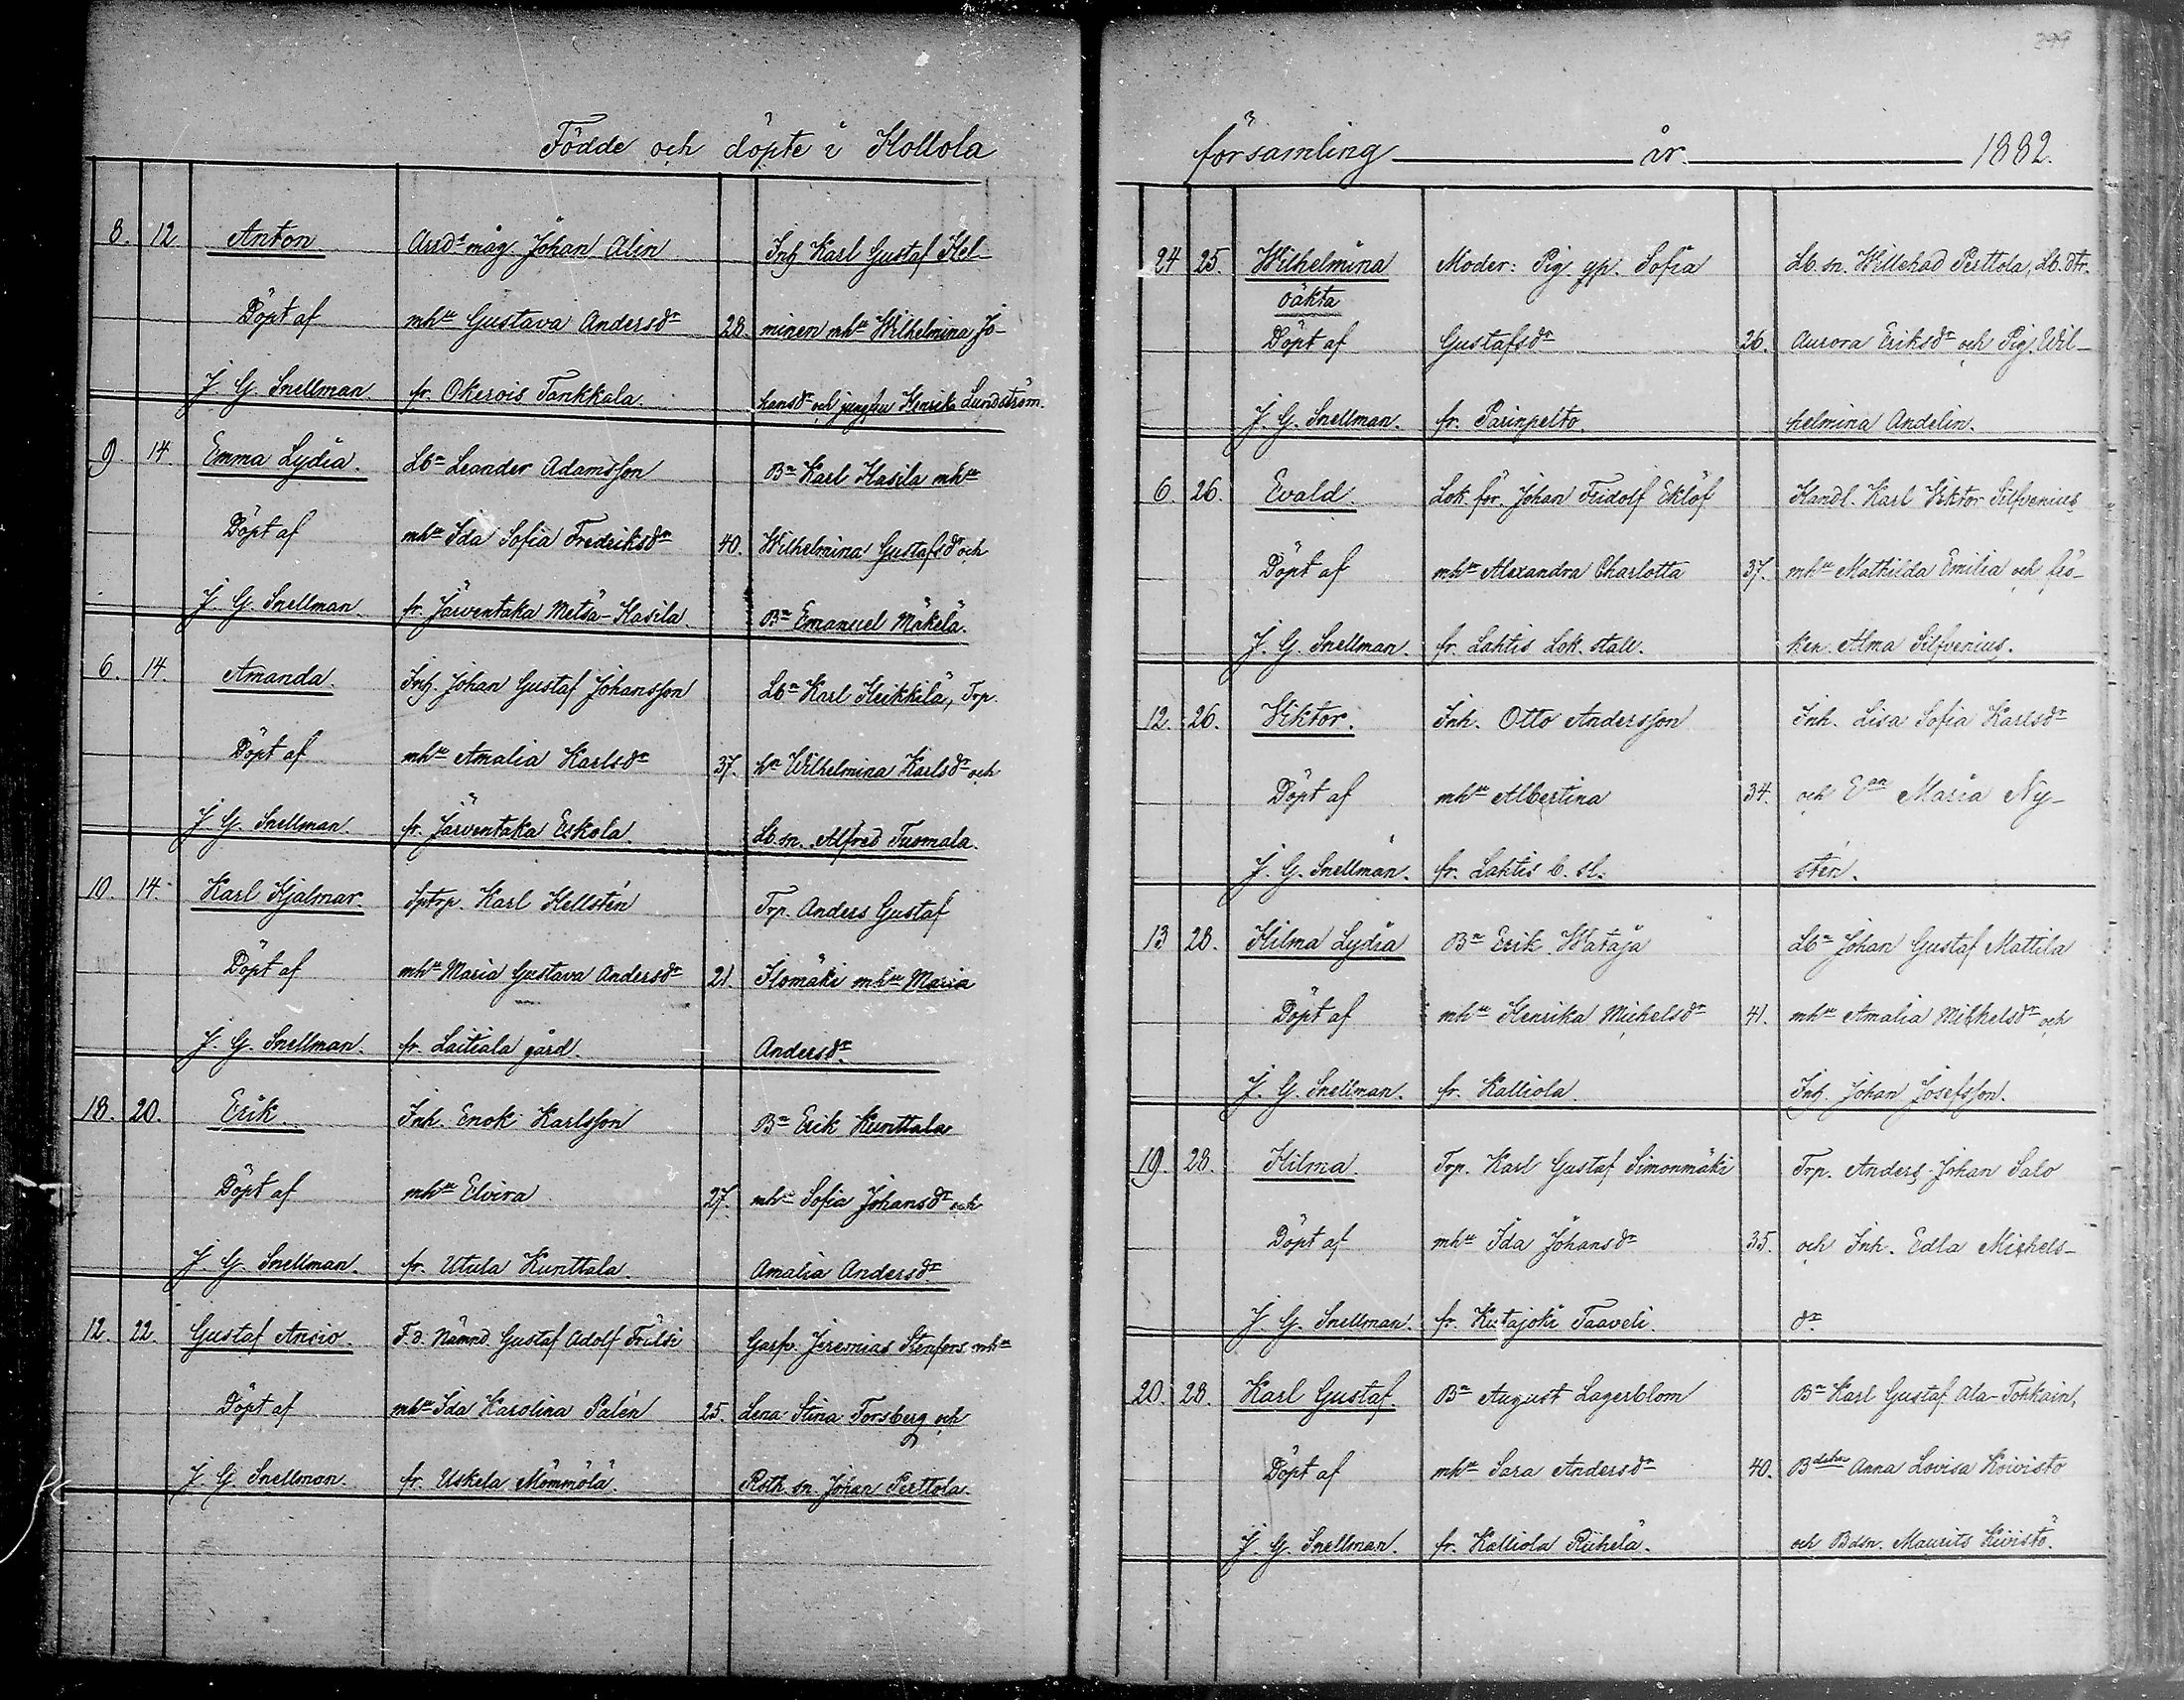 Födde och döpte i Hollola
8. 12 Anton Johan Alin Inh Karl Gustaf Hel-
Döpt af mhu Gustava Andersdr 28. minen mhu Wilhelmina Jo-
J. G. Snellman fr. Okerois Tankkala. hansdr och jungfru Henrika Lundström.
9. 14. Emma Lydia. Lbn Leander Adamsson Bn Karl Hasila mhu
Döpt af mhu Ida Sofia Fredriksdr 40. Wilhelmina Gustafsdr och
J. G. Snellman. fr. Järventaka Metsä-Hasila. Bn Emanuel Mäkelä.
6. 14. Amanda. Inh. Johan Gustaf Johansson Lbn Karl Heikkilä, Trp.
Döpt af mhu Amalia Karlsdr 37. hu Wilhelmina Karlsdr och
J. G. Snellman. fr. Järventaka Eskola. Lb. sn. Alfred Tuomala.
10. 14. Karl Hjalmar. Sptrp. Karl Hellstén Trp. Anders Gustaf
Döpt af mhu Maria Gustava Andersdr 21. Ilomäki mhu Maria
J. G. Snellman. fr. Laitiala gård. Andersdr
18. 20. Erik Inh. Enok Karlsson Bn Erik Kunttala
Döpt af mhu Elvira 27. mhu Sofia Johansdr och
J. G. Snellman. fr. Utula Kunttala. Amalia Andersdr
12. 22. Gustaf F. d. Nämnd. Gustaf Adolf Garfv. Jeremias Stenfors mhu
Döpt af mhu Ida Karolina Palén 25. Lena Stina Forsberg och
J. G. Snellman. fr. Uskela Mömmölä. Roth. sn. Johan Perttola.
299
församling år 1882.
24 25. Wilhelmina Moder: Pig. gp. Sofia Lb. sn. Willehad Perttola, Lb. dtr.
oäkta
Döpt af Gustafsdr 26. Aurora Eriksdr och Pig. Wil-
J. G. Snellman. fr. Parinpelto. helmina Andelin.
6. 26. Evald. Lok. för. Johan Fridolf Eklöf Handl. Karl Viktor Silfvenius
Döpt af mhu Alexandra Charlotta 37. mhu Mathilda Emilia och frö-
J. G. Snellman. fr. Lahtis Lok. stall. ken Alma Silfvenius.
12. 26. Viktor. Inh. Otto Andersson Inh. Lisa Sofia Karlsdr
Döpt af mhu Albertina 34. och Ean Maria Ny-
J. G. Snellman. fr. Lahtis b. sl. stén.
13 28. Hilma Lydia Bn Erik Wataja Lbn Johan Gustaf Mattila
Döpt af mhu Henrika Michelsdr 41. mhu Amalia Mikhelsdr och
J. G. Snellman. fr. Kalliola. Inh. Johan Josefsson.
19. 28. Hilma. Trp. Karl Gustaf Simonmäki Trp. Anders Johan Salo
Döpt af mhu Ida Johansdr 35. och Inh. Edla Mikhels-
J. G. Snellman. fr. Kutajoki Taaveli. dr
20. 28. Karl Gustaf. Bn August Lagerblom Bn Karl Gustaf Ala-Tokkain,
Döpt af mhu Sara Andersdr 40. Anna Lovisa Koivisto
J. G. Snellman. fr. Kalliola Riihelä. och Bdsn. Maurits Kivistö.